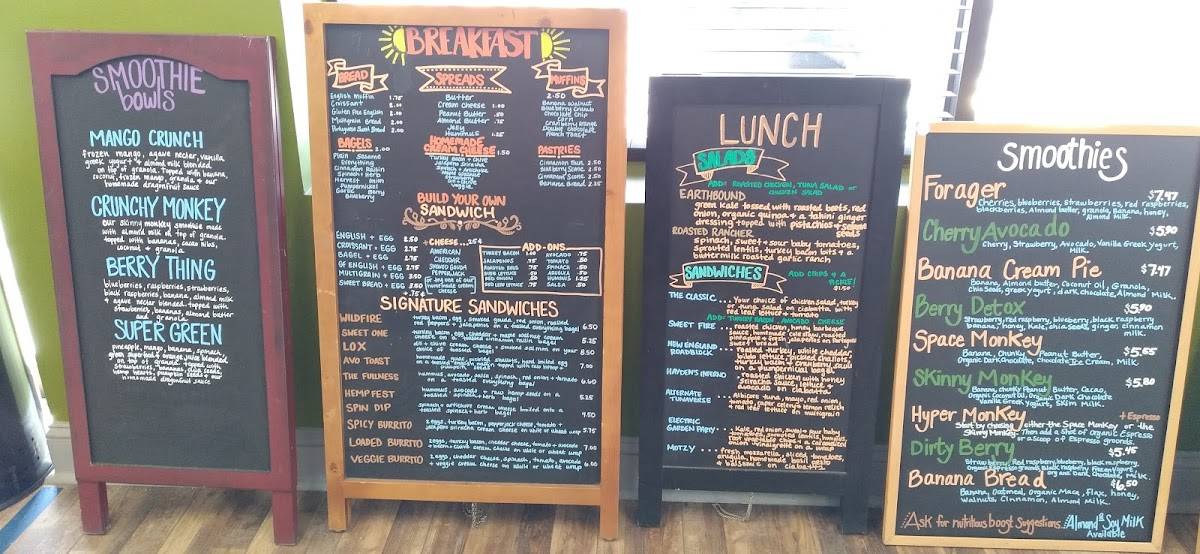 SMOOTHIE
bowls
MANGO CRUNCH
frozen mango, agave necter, vanilla
greek yogurt & almond milk blended
on top of granola. Topped with banana,
coconut, frozen mango, granola & our
homemade dragonfruit sauce
CRUNCHY MONKEY
our skinny monkey smoothie made
with almond milk on top of granola.
topped with bananas, cacao nibs,
coconut & granola
BERRY THING
blueberries, raspberries, strawberries,
black raspberries, banana, almond milk
& agave necter blended. topped with
strawberries, bananas, almond butter
and granola
SUPER GREEN
pineapple, mango, banana, spinach,
green superfood & orange juice blended
on top of granola topped with
strawberries, bananas, chia seeds,
hemp hearts, pumpkin seeds & our
homemade dragonfruit sauce
BREAKFAST
BREAD
English Muffin 1.75
Croissant 2.00
Gluten Free English 2.00
Multigrain Bread 2.00
Portuguese Sweet Bread 2.00
BAGELS 2.00
Plain Sesame
Everything
Cinnamon Raisin
Spinach + Herb
Harvest Onion
Pumpernickel
Garlic Berry
Blueberry
SPREADS
Butter
Cream Cheese 1.00
Peanut Butter .50
Almond Butter .75
Jelly
Hummus 1.25
HOMEMADE
CREAM CHEESE 1.50
Turkey Bacon + Chive
Jalapeno Sriracha
Spinach + Artichoke
Veggie
MUFFINS
2.50
Banana Walnut
Blueberry Crumb
Chocolate Chip
Corn
Cranberry Orange
Double Chocolate
French Toast
PASTRIES
Cinnamon Bun 2.50
Blueberry Scone 2.50
Cinnamon Scone 2.50
Banana Bread 2.25
BUILD YOUR OWN
SANDWICH
ENGLISH + EGG 2.50
CROISSANT + EGG 2.75
BAGEL + EGG 2.75
GF ENGLISH + EGG 2.75
MULTIGRAIN + EGG 2.50
SWEET BREAD + EGG 2.50
+ CHEESE... .25¢
AMERICAN
CHEDDAR
SMOKED GOUDA
PEPPERJACK
(or any one of our
homemade cream
cheese)
ADD-ONS
TURKEY BACON 1.00
JALAPENOS .75
ROASTED REDS .75
RED ONION .50
AVOCADO .75
TOMATO .50
SPINACH .50
HUMMUS 1.25
SALSA .50
SIGNATURE SANDWICHES
WILDFIRE turkey bacon, egg, smoked gouda, red onion, roasted
red peppers + jalapenos on a toasted everything bagel 6.50
SWEET ONE turkey bacon, egg, cheddar + maple walnut cream
cheese on a toasted cinnamon raisin bagel 5.25
LOX
choice of toasted bagel 8.50
AVO TOAST
7.00
THE FULLNESS hummus, avocado, salsa, spinach, red onion + tomato
on a toasted everything bagel 6.00
HEMP FEST hummus, avocado + raw hemp seeds on a
toasted spinach + herb bagel 5.25
SPIN DIP spinach + artichoke cream cheese melted onto a
toasted spinach + herb bagel 4.50
SPICY BURRITO 2 eggs, turkey bacon, pepperjack cheese, tomato +
jalapeno sriracha cream cheese on white or wheat wrap 5.75
LOADED BURRITO 2 eggs, turkey bacon, cheddar cheese, tomato + avocado
+ bacon + chive cream cheese on white or wheat wrap 7.00
VEGGIE BURRITO 2 eggs, cheddar cheese, spinach, tomato, avocado
+ veggie cream cheese on white or wheat wrap 6.00
LUNCH
SALADS
ADD: ROASTED CHICKEN, TUNA SALAD or
CHICKEN SALAD
EARTHBOUND
green kale tossed with roasted beets, red
onion, organic quinoa & a tahini ginger
dressing topped with pistachios + sesame
seeds
ROASTED RANCHER
spinach, sweet + sour baby tomatoes,
sprouted lentils, turkey bacon bits + a
buttermilk roasted garlic ranch
SANDWICHES
ADD CHIPS & A
PICKLE!
$1.50
THE CLASSIC ... Your choice of chicken salad, turkey
or tuna salad on ciabatta with
red leaf lettuce + tomato
ADD: TURKEY BACON AVOCADO CHEESE
SWEET FIRE ... roasted chicken, honey barbeque
sauce, homemade coleslaw, roasted
pineapple + fresh jalapenos on Portuguese
sweet bread
NEW ENGLAND
ROADBLOCK ... Roasted turkey, white cheddar,
bibb lettuce, pickled onions,
turkey bacon + cranberry sauce
on a plumpernickel bagel
HAYDEN'S INFERNO ... roasted chicken with honey
sriracha sauce, lettuce +
avocado on ciabatta
ALTERNATE
TUNAVERSE ... Albicore tuna, mayo, red onion,
tomato, paper celery + lemon relish
+ red leaf lettuce on multigrain
ELECTRIC
GARDEN PARTY ... Kale, red onion, sweet + sour baby
tomatoes, sprouted lentils, hummus,
root vegetable chips + a caramelized
onion vinaigrette on a wrap
MOTZY ... fresh mozzarella, sliced tomatoes,
arugula, homemade basil pesto
& balsamic on ciabatta
Smoothies
Forager $7.47
Cherries, blueberries, strawberries, red raspberries,
blackberries, Almond butter, granola, Banana, honey,
Almond Milk.
Cherry Avocado $5.90
Cherry, Strawberry, Avocado, Vanilla Greek Yogurt,
Milk.
Banana Cream Pie $7.47
Banana, Almond butter, Coconut Oil, Granola,
Chia Seeds, greek yogurt, dark chocolate, Almond Milk.
Berry Detox $5.90
Strawberry, red raspberry, blueberry, black raspberry
banana, honey, Kale, chia seeds, ginger, cinnamon
milk.
Space Monkey $5.55
Banana, Chunky Peanut Butter,
Organic Dark Chocolate, Chocolate Ice Cream, Milk.
Skinny Monkey $5.80
Banana, chunky Peanut Butter, Cacao,
Organic Coconut Oil, Organic Dark Chocolate
Vanilla Greek Yogurt, Skim Milk.
Hyper Monkey + Espresso
Start by chosing either the Space Monkey or the
Skinny Monkey. Then add a Shot of Organic Espresso
or a scoop of Espresso grounds.
Dirty Berry $5.45
Strawberry, red raspberry, blueberry, black raspberry,
Organic Espresso grounds, Black raspberry Frozen Yogurt,
Organic Dark Chocolate, Milk.
Banana Bread $6.50
Banana, Oatmeal, Organic Maca, flax, honey,
Walnuts, Cinnamon, Almond Milk.
Ask for nutritious boost Suggestions. Almond & Soy Milk
Available